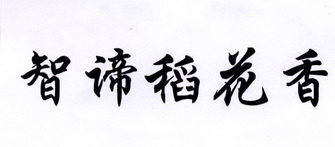 智谛稻花香